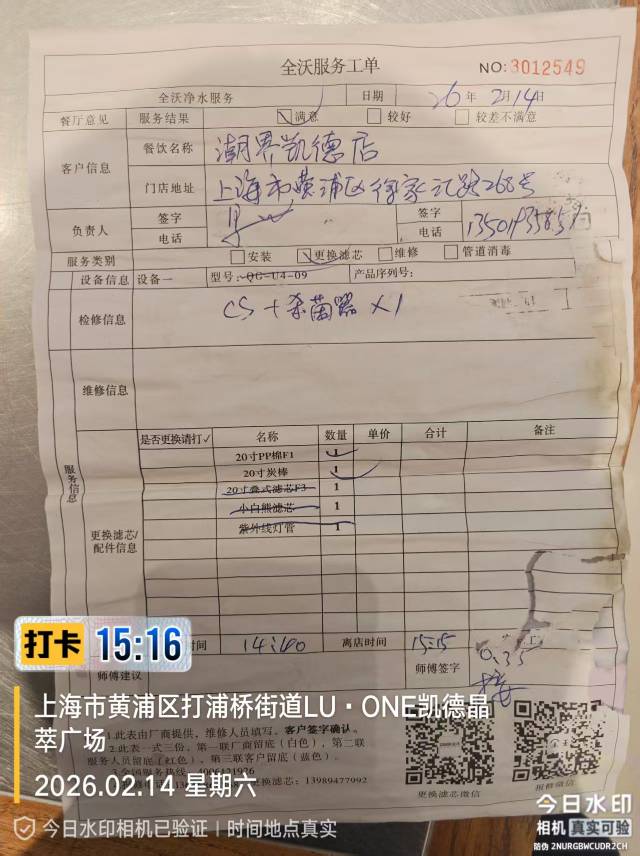 全沃服务工单
NO:3012549
全沃净水服务 日期 26年2月14日
餐厅意见 服务结果 满意 较好 较差不满意
客户信息 餐饮名称 潮界凯德店
门店地址 上海市黄浦区徐家汇路268号
负责人 签字 签字
电话 电话
服务类别 安装 更换滤芯 维修 管道消毒
设备信息 设备一 型号:QG-U4-09 产品序列号:
检修信息 CS+杀菌器×1
维修信息
服务信息
更换滤芯/配件信息
是否更换请打√ 名称 数量 单价 合计 备注
20寸PP棉F1 1
20寸炭棒 1
20寸叠式滤芯F3 1
小白熊滤芯 1
紫外线灯管 1
时间 14:40 离店时间 15:15
师傅建议 师傅签字 0.35
打卡 15:16
上海市黄浦区打浦桥街道LU·ONE凯德晶
萃广场
2026.02.14 星期六
1.此表由厂商提供，维修人员填写，客户签字确认。
2.此表一式三份，第一联厂商留底(白色)，第二联
服务人员留底(红色)，第三联客户留底(蓝色)。
更换滤芯:13989477992
更换滤芯微信
报修微信
今日水印相机已验证 | 时间地点真实
今日水印
相机 真实可验
防伪 2NURGBWCUDR2CH